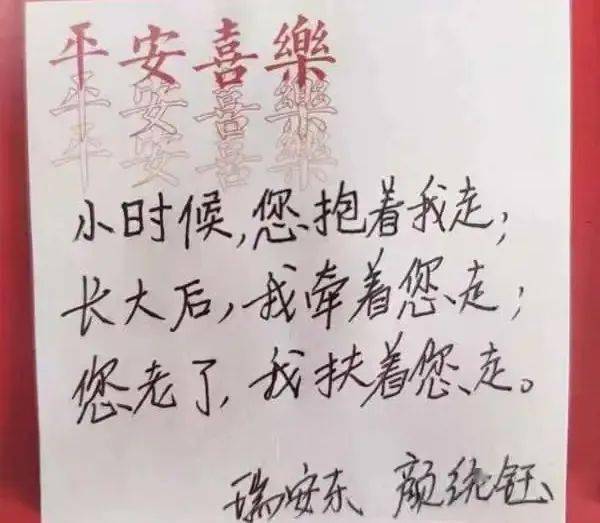 平安喜樂
平安喜樂
平安喜樂
小时候,您抱着我走;
长大后,我牵着您走;
您老了,我扶着您走。
瑞安东 颜统钰